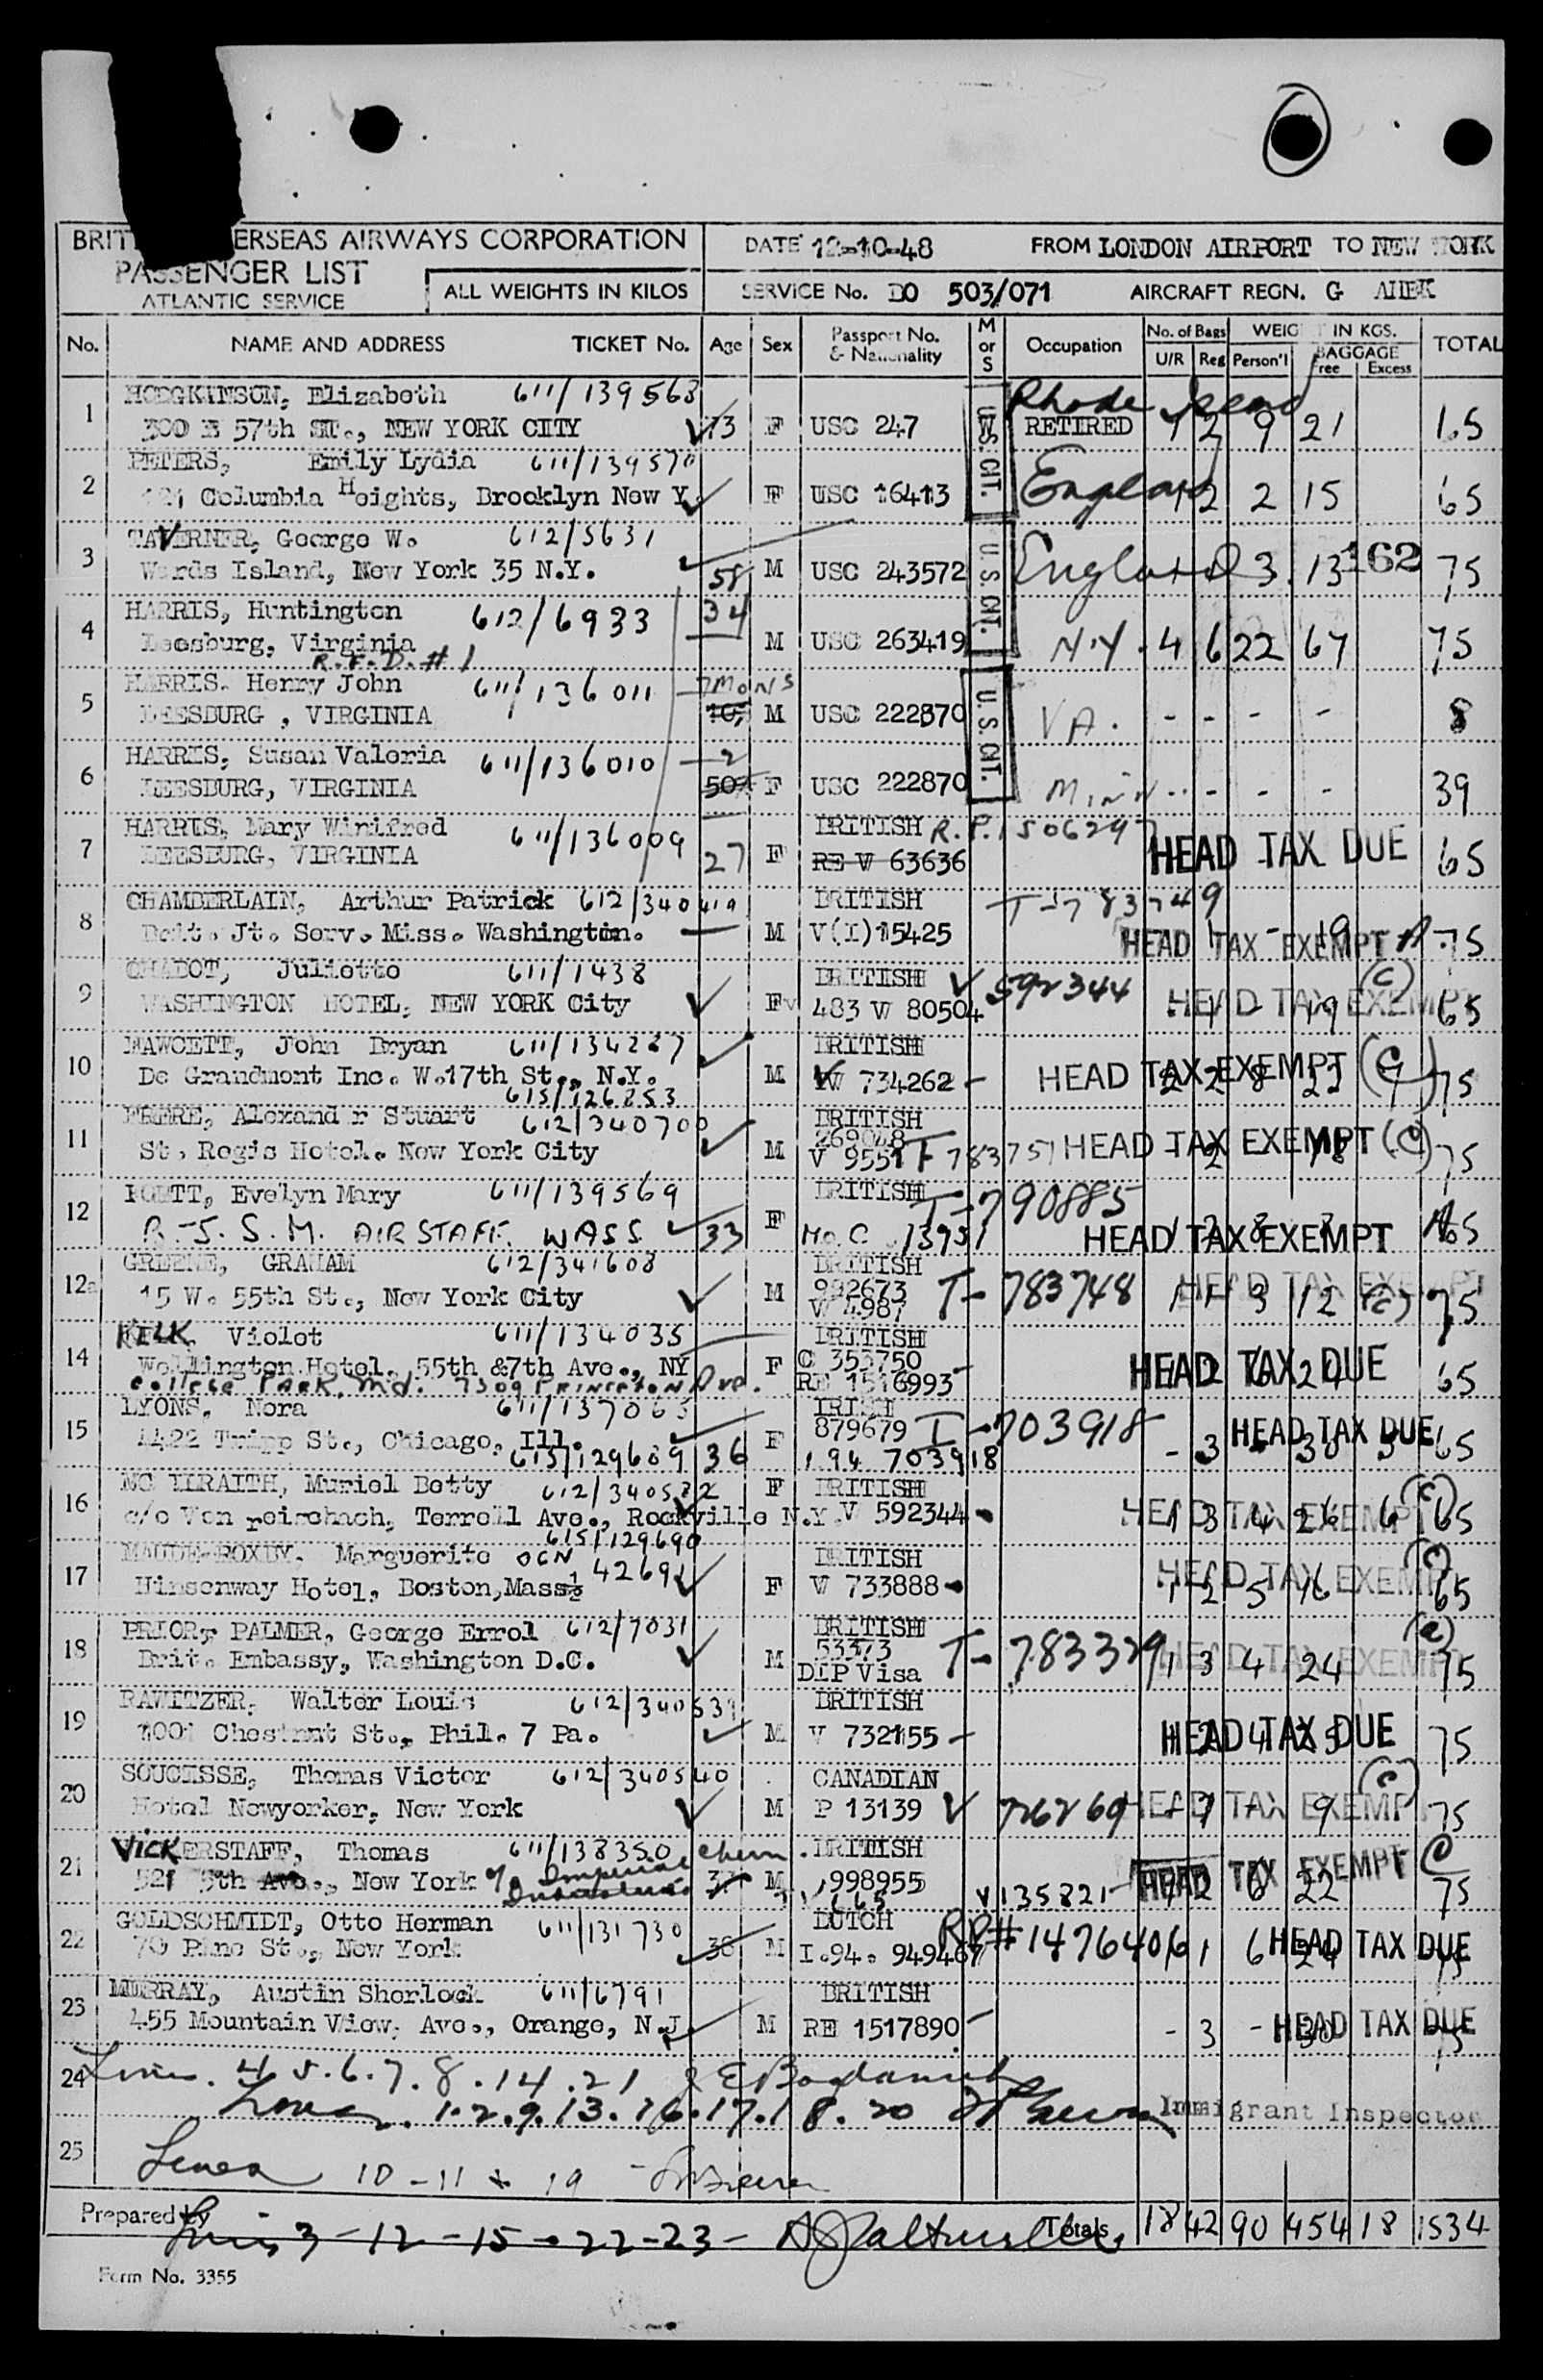 BRIT ERSEAS AIRWAYS CORPORATION
PASSENGER LIST
ATLANTIC SERVICE
ALL WEIGHTS IN KILOS
DATE 12-10-48 FROM LONDON AIRPORT TO NEW YORK
SERVICE No. BO 503/071 AIRCRAFT REGN. G AHEK
No. NAME AND ADDRESS TICKET No. Age Sex Passport No. & Nationality M or S Occupation No. of Bags U/R Reg WEIG IN KGS. Person'l BAGGAGE Free Excess TOTAL
1 HODGKINSON, Elizabeth 611/139568 Rhode Island
300 E 57th ST., NEW YORK CITY 73 F USC 247 U.S. CIT. RETIRED 1 2 9 21 65
2 PETERS, Emily Lydia 611/139570
Columbia Heights, Brooklyn New Y. F USC 16413 England 1 2 2 15 65
3 TAVERNER, George W. 612/5631
Wards Island, New York 35 N.Y. 58 M USC 243572 U.S. CIT. England 3 13 162 75
4 HARRIS, Huntington 612/6933 34
Leesburg, Virginia M USC 263419 N.Y. 4 6 22 67 75
R.F.D. #1
5 HARRIS. Henry John 611/136011 7 MONS
LEESBURG, VIRGINIA M USC 222870 U.S. CIT. VA. - - - - 8
6 HARRIS, Susan Valeria 611/136010 2
LEESBURG, VIRGINIA F USC 222870 MINN. - - - 39
7 HARRIS, Mary Winifred 611/136009 BRITISH R.P. 150629
LEESBURG, VIRGINIA 27 F RE V 63636 HEAD TAX DUE 65
8 CHAMBERLAIN, Arthur Patrick 612/340419 BRITISH T-783749
Brit. Jt. Serv. Miss. Washington. M V(I)15425 HEAD TAX EXEMPT A 75
9 CHABOT, Juliette 611/1438 BRITISH V 592344 (C)
WASHINGTON HOTEL, NEW YORK City F 483 W 80504 HEAD TAX EXEMPT 65
10 FAWCETT, John Bryan 611/134227 BRITISH
De Grandmont Inc. W.17th St., N.Y. M V 734262 - HEAD TAX EXEMPT (C) 75
615/126853
11 FRERE, Alexand r Stuart 612/340700 BRITISH
269048
St. Regis Hotel. New York City M V 9551 T-783751 HEAD TAX EXEMPT (C) 75
12 Evelyn Mary 611/139569 BRITISH T-790885
B.J.S.M. AIRSTAFF. WASS 33 F 13951 HEAD TAX EXEMPT A 65
12a GREENE, GRAHAM 612/341608 BRITISH
992673
15 W. 55th St., New York City M V 4987 T-783748 HEAD TAX EXEMPT 1 1 3 12 (C) 75
14 KILK Violet 611/134035 BRITISH
Wellington Hotel, 55th &7th Ave., NY F C 353750 HEAD TAX DUE 65
College Park, Md. 7309 Princeton Ave. RE 1516993
15 LYONS, Nora 611/137065 IRISH
879679 I-703918
4422 Tripp St., Chicago, Ill. 36 F - 3 HEAD TAX DUE 65
615/129689 I 94 703918
16 MC ILRAITH, Muriel Betty 612/340532 F BRITISH (C)
c/o Von reischach, Terrell Ave., Rockville N.Y. V 592344 HEAD TAX EXEMPT 1 3 4 26 6 65
615/129690
17 MAUDE-ROXBY, Marguerite OCN 42691 BRITISH (C)
Hinsenway Hotel, Boston, Mass F V 733888 HEAD TAX EXEMPT 1 2 5 16 65
18 PRIOR, PALMER, George Errol 612/7031 BRITISH (a)
53373
Brit. Embassy, Washington D.C. M DIP Visa T-783329 HEAD TAX EXEMPT 1 3 4 24 75
19 RAWITZER, Walter Louis 612/340539 BRITISH
1001 Chestnut St., Phil. 7 Pa. M V 732155 - HEAD TAX DUE 75
20 SOUCISSE, Thomas Victor 612/340540 CANADIAN (C)
Hotel Newyorker, New York M P 13139 V 726269 HEAD TAX EXEMPT 9 75
21 VICKERSTAFF, Thomas 611/138350 BRITISH
521 5th Ave., New York c/o Imperial Chem. Industries M 998955 V135821 HEAD TAX EXEMPT C 1 2 6 22 75
22 GOLDSCHMIDT, Otto Herman 611/131730 DUTCH
70 Pine St., New York 38 M I.94. 949467 RP# 1476406 1 6 24 HEAD TAX DUE 75
23 MURRAY, Austin Sherlock 611/6791 BRITISH
455 Mountain View, Ave., Orange, N.J. M RE 1517890 - - 3 - 30 HEAD TAX DUE 75
24 Lines. 4 5.6.7.8.14.21
Lines. 1.2.9.13.16.17.18.20 Immigrant Inspector
25
Lines 10 - 11 & 19
Prepared by
Lines 3 - 12 - 15 - 22 - 23 - Totals 18 42 90 454 18 1534
Form No. 3355